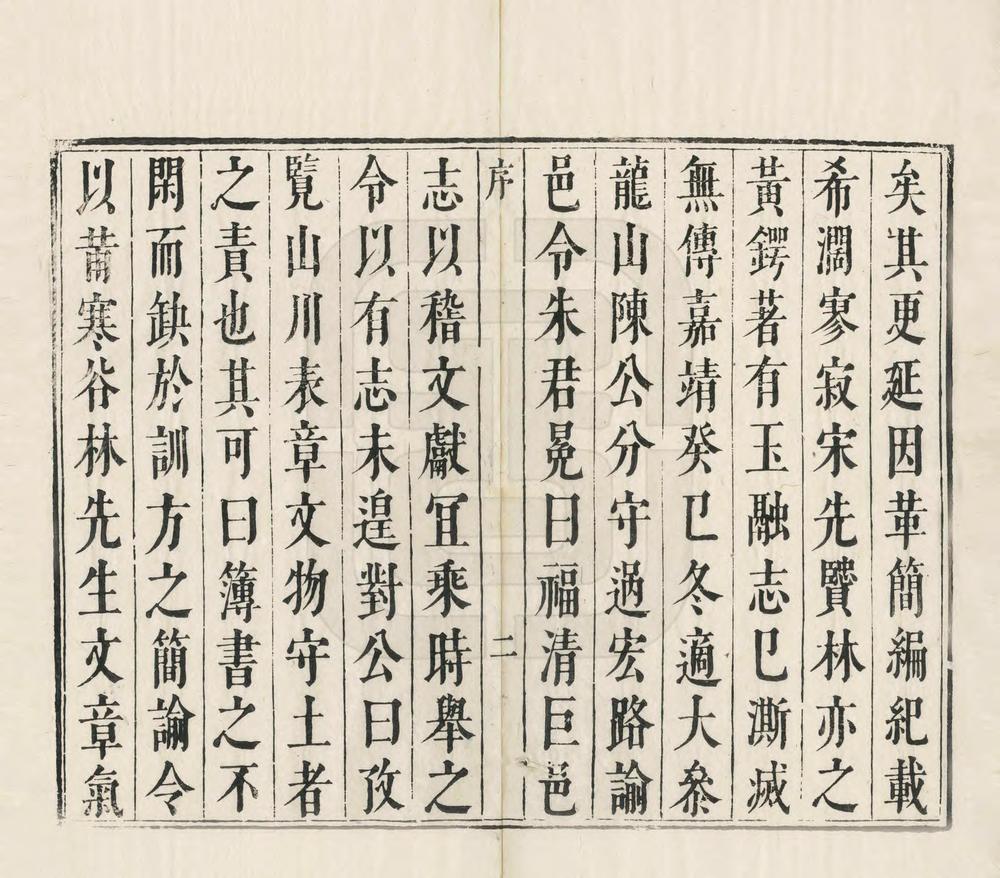 矣其更延因革簡編紀載
希濶寥寂宋先贒林亦之
黃鍔著有玉融志已澌㓕
無傳嘉靖癸巳冬適大叅
龍山陳公分守過宏路論
邑令朱君冕曰福清巨邑
序 二
志以稽文獻冝乘時舉之
令以有志未遑對公曰攷
覽山川表章文物守土者
之責也其可曰簿書之不
閑而缺於訓方之簡諭令
以莆寒谷林先生文章氣